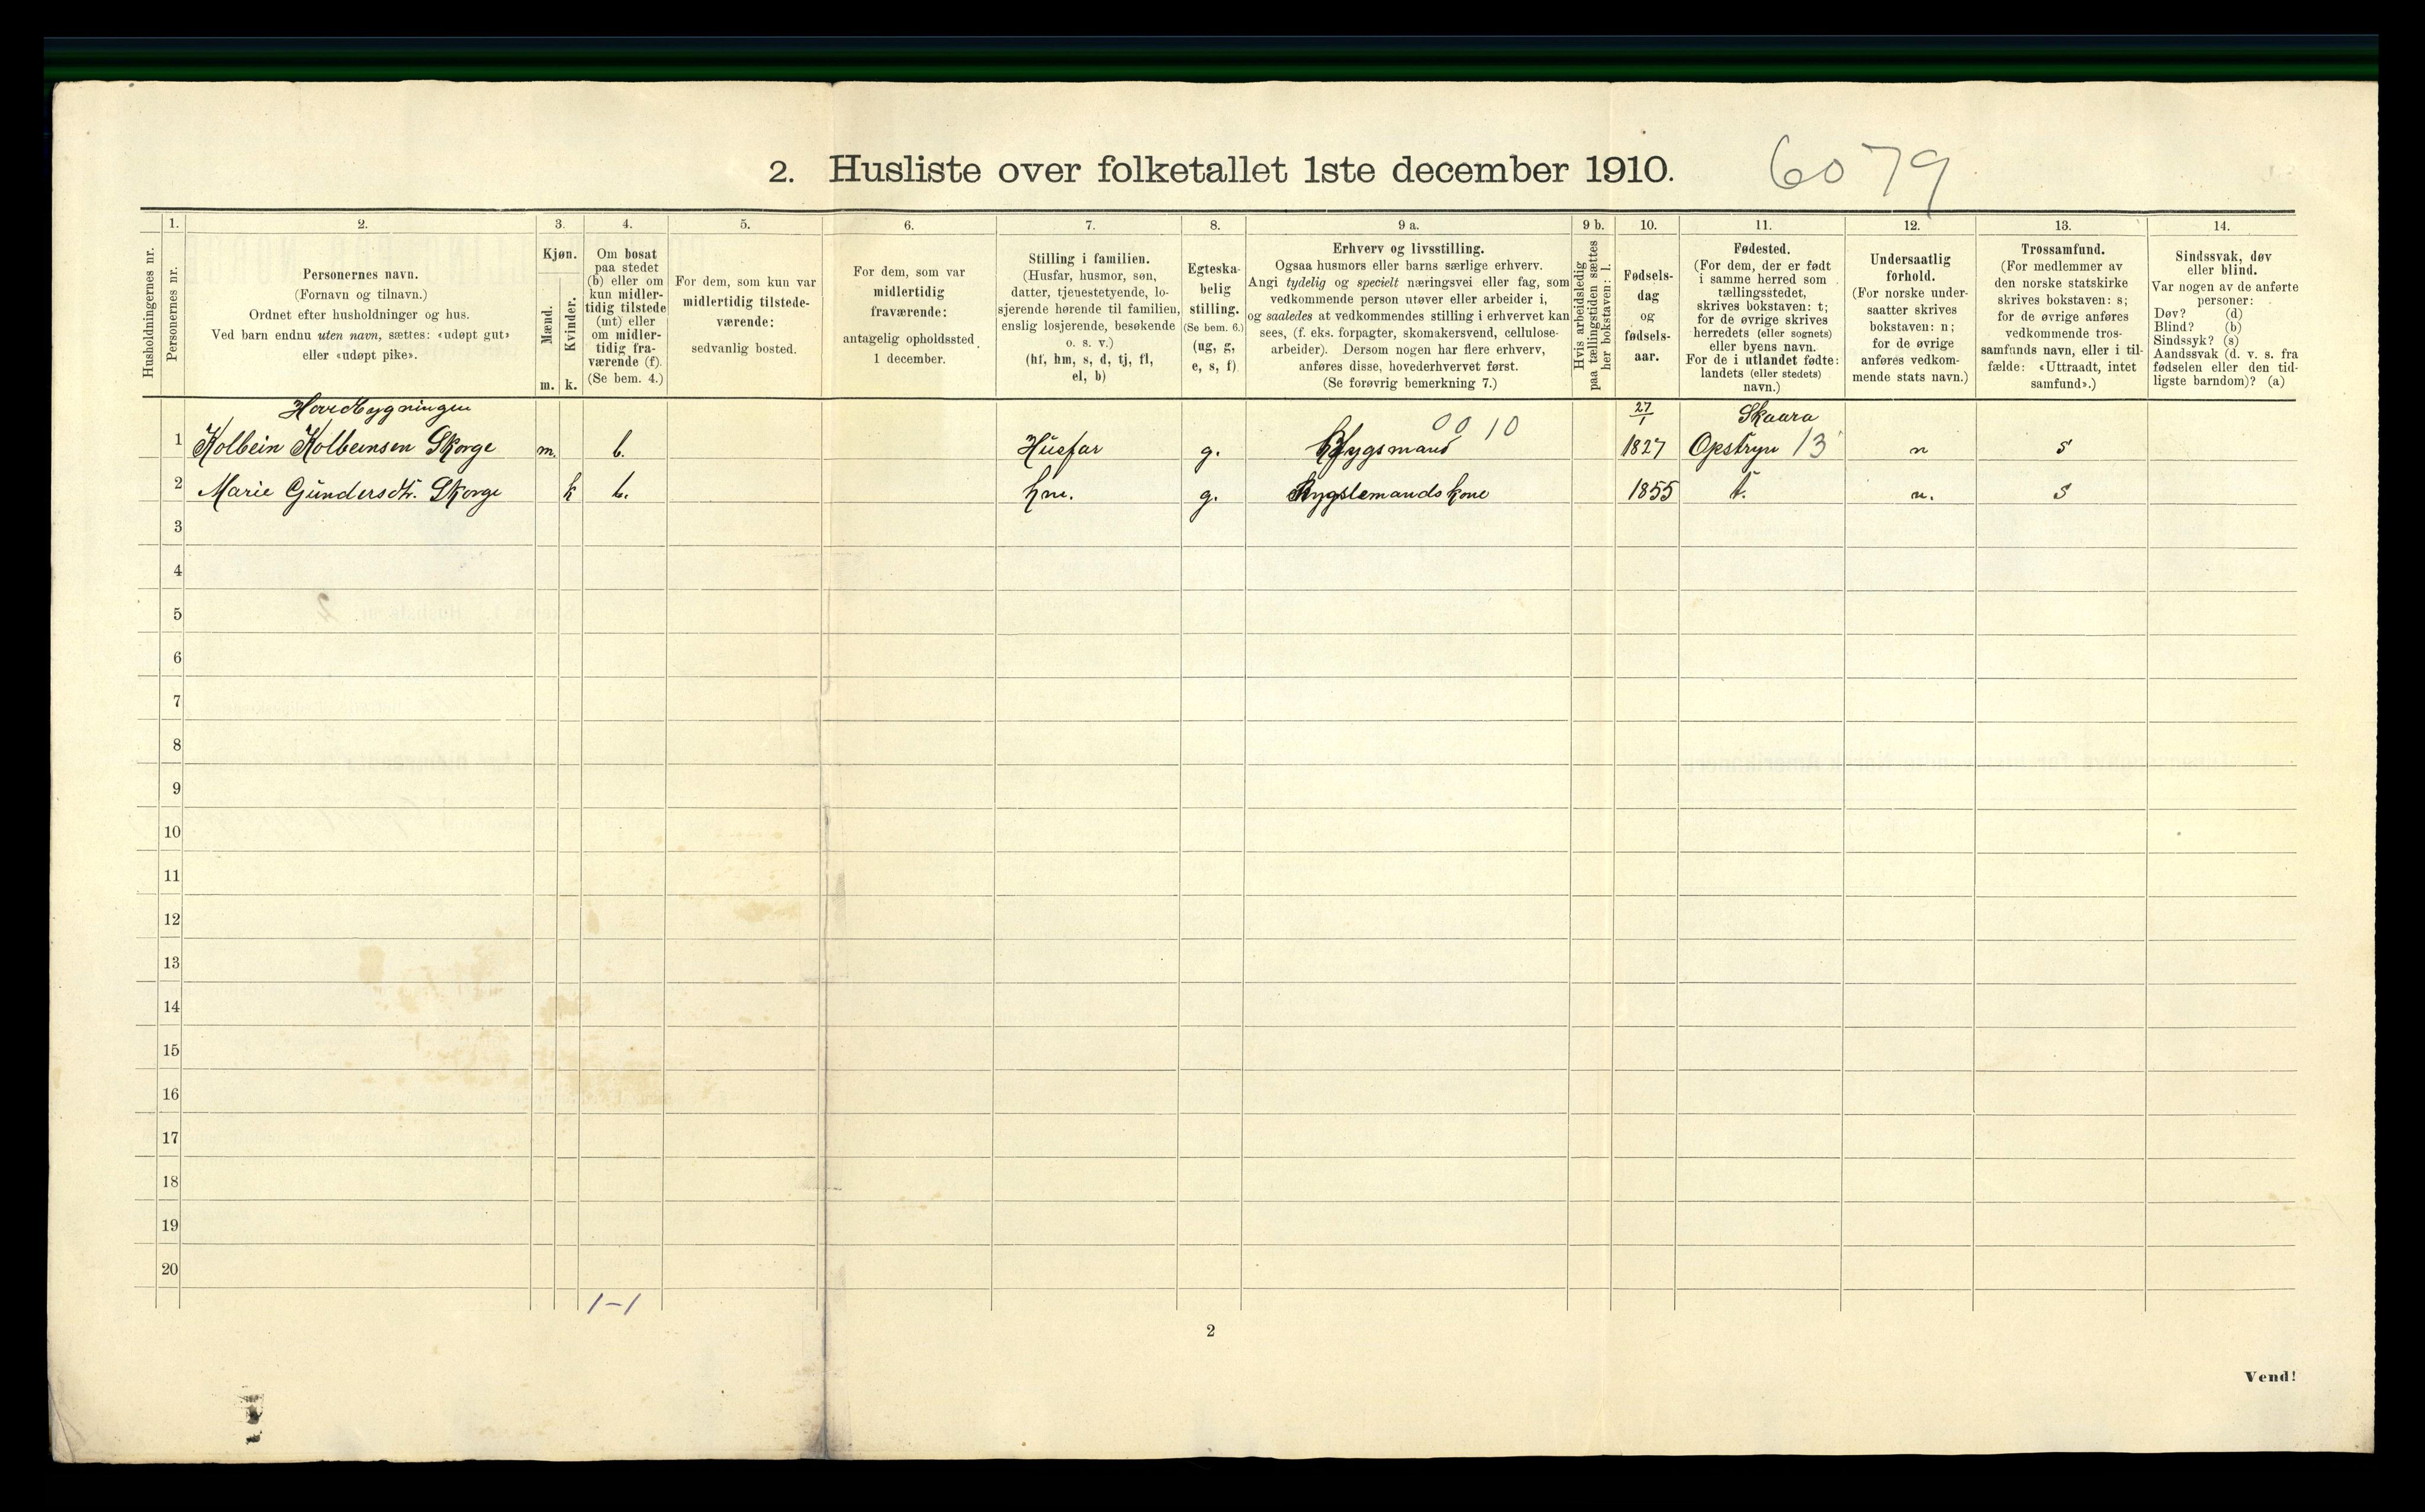 2. Husliste over folketallet 1ste december 1910.
6079
Husholdningernes nr.
1.
Personernes nr.
2.
Personernes navn.
(Fornavn og tilnavn.)
Ordnet efter husholdninger og hus.
Ved barn endnu uten navn, sættes: «udøpt gut»
eller «udøpt pike».
3.
Kjøn.
Mænd.
m.
Kvinder.
k.
4.
Om bosat
paa stedet
(b) eller om
kun midler-
tidig tilstede
(mt) eller
om midler-
tidig fra-
værende (f).
(Se bem. 4.)
5.
For dem, som kun var
midlertidig tilstede-
værende:
sedvanlig bosted.
6.
For dem, som var
midlertidig
fraværende:
antagelig opholdssted
1 december.
7.
Stilling i familien.
(Husfar, husmor, søn,
datter, tjenestetyende, lo-
sjerende hørende til familien,
enslig losjerende, besøkende
o. s. v.)
(hf, hm, s, d, tj, fl,
el, b)
8.
Egteska-
belig
stilling.
(Se bem. 6.)
(ug, g,
e, s, f)
9 a.
Erhverv og livsstilling.
Ogsaa husmors eller barns særlige erhverv.
Angi tydelig og specielt næringsvei eller fag, som
vedkommende person utøver eller arbeider i,
og saaledes at vedkommendes stilling i erhvervet kan
sees, (f. eks. forpagter, skomakersvend, cellulose-
arbeider). Dersom nogen har flere erhverv,
anføres disse, hovederhvervet først.
(Se forøvrig bemerkning 7.)
9 b.
Hvis arbeidsledig
paa tællingstiden sættes
her bokstaven: l.
10.
Fødsels-
dag
og
fødsels-
aar.
11.
Fødested.
(For dem, der er født
i samme herred som
tællingsstedet,
skrives bokstaven: t;
for de øvrige skrives
herredets (eller sognets)
eller byens navn.
For de i utlandet fødte:
landets (eller stedets)
navn.)
12.
Undersaatlig
forhold.
(For norske under-
saatter skrives
bokstaven: n;
for de øvrige
anføres vedkom-
mende stats navn.)
13.
Trossamfund.
(For medlemmer av
den norske statskirke
skrives bokstaven: s;
for de øvrige anføres
vedkommende tros-
samfunds navn, eller i til-
fælde: «Uttraadt, intet
samfund».)
14.
Sindssvak, døv
eller blind.
Var nogen av de anførte
personer:
Døv? (d)
Blind? (b)
Sindssyk? (s)
Aandssvak (d. v. s. fra
fødselen eller den tid-
ligste barndom)? (a)
Hovedbygningen 0010 27/1 Skaara
1 Kolbein Kolbeinsen Skorge m. b. Husfar g. 1827 Opstryn 13 n s
2 Marie Gundersdtr. Skorge k b. hm. g. 1855 t. n. s
3
4
5
6
7
8
9
10
11
12
13
14
15
16
17
18
19
20
1-1
2
Vend!